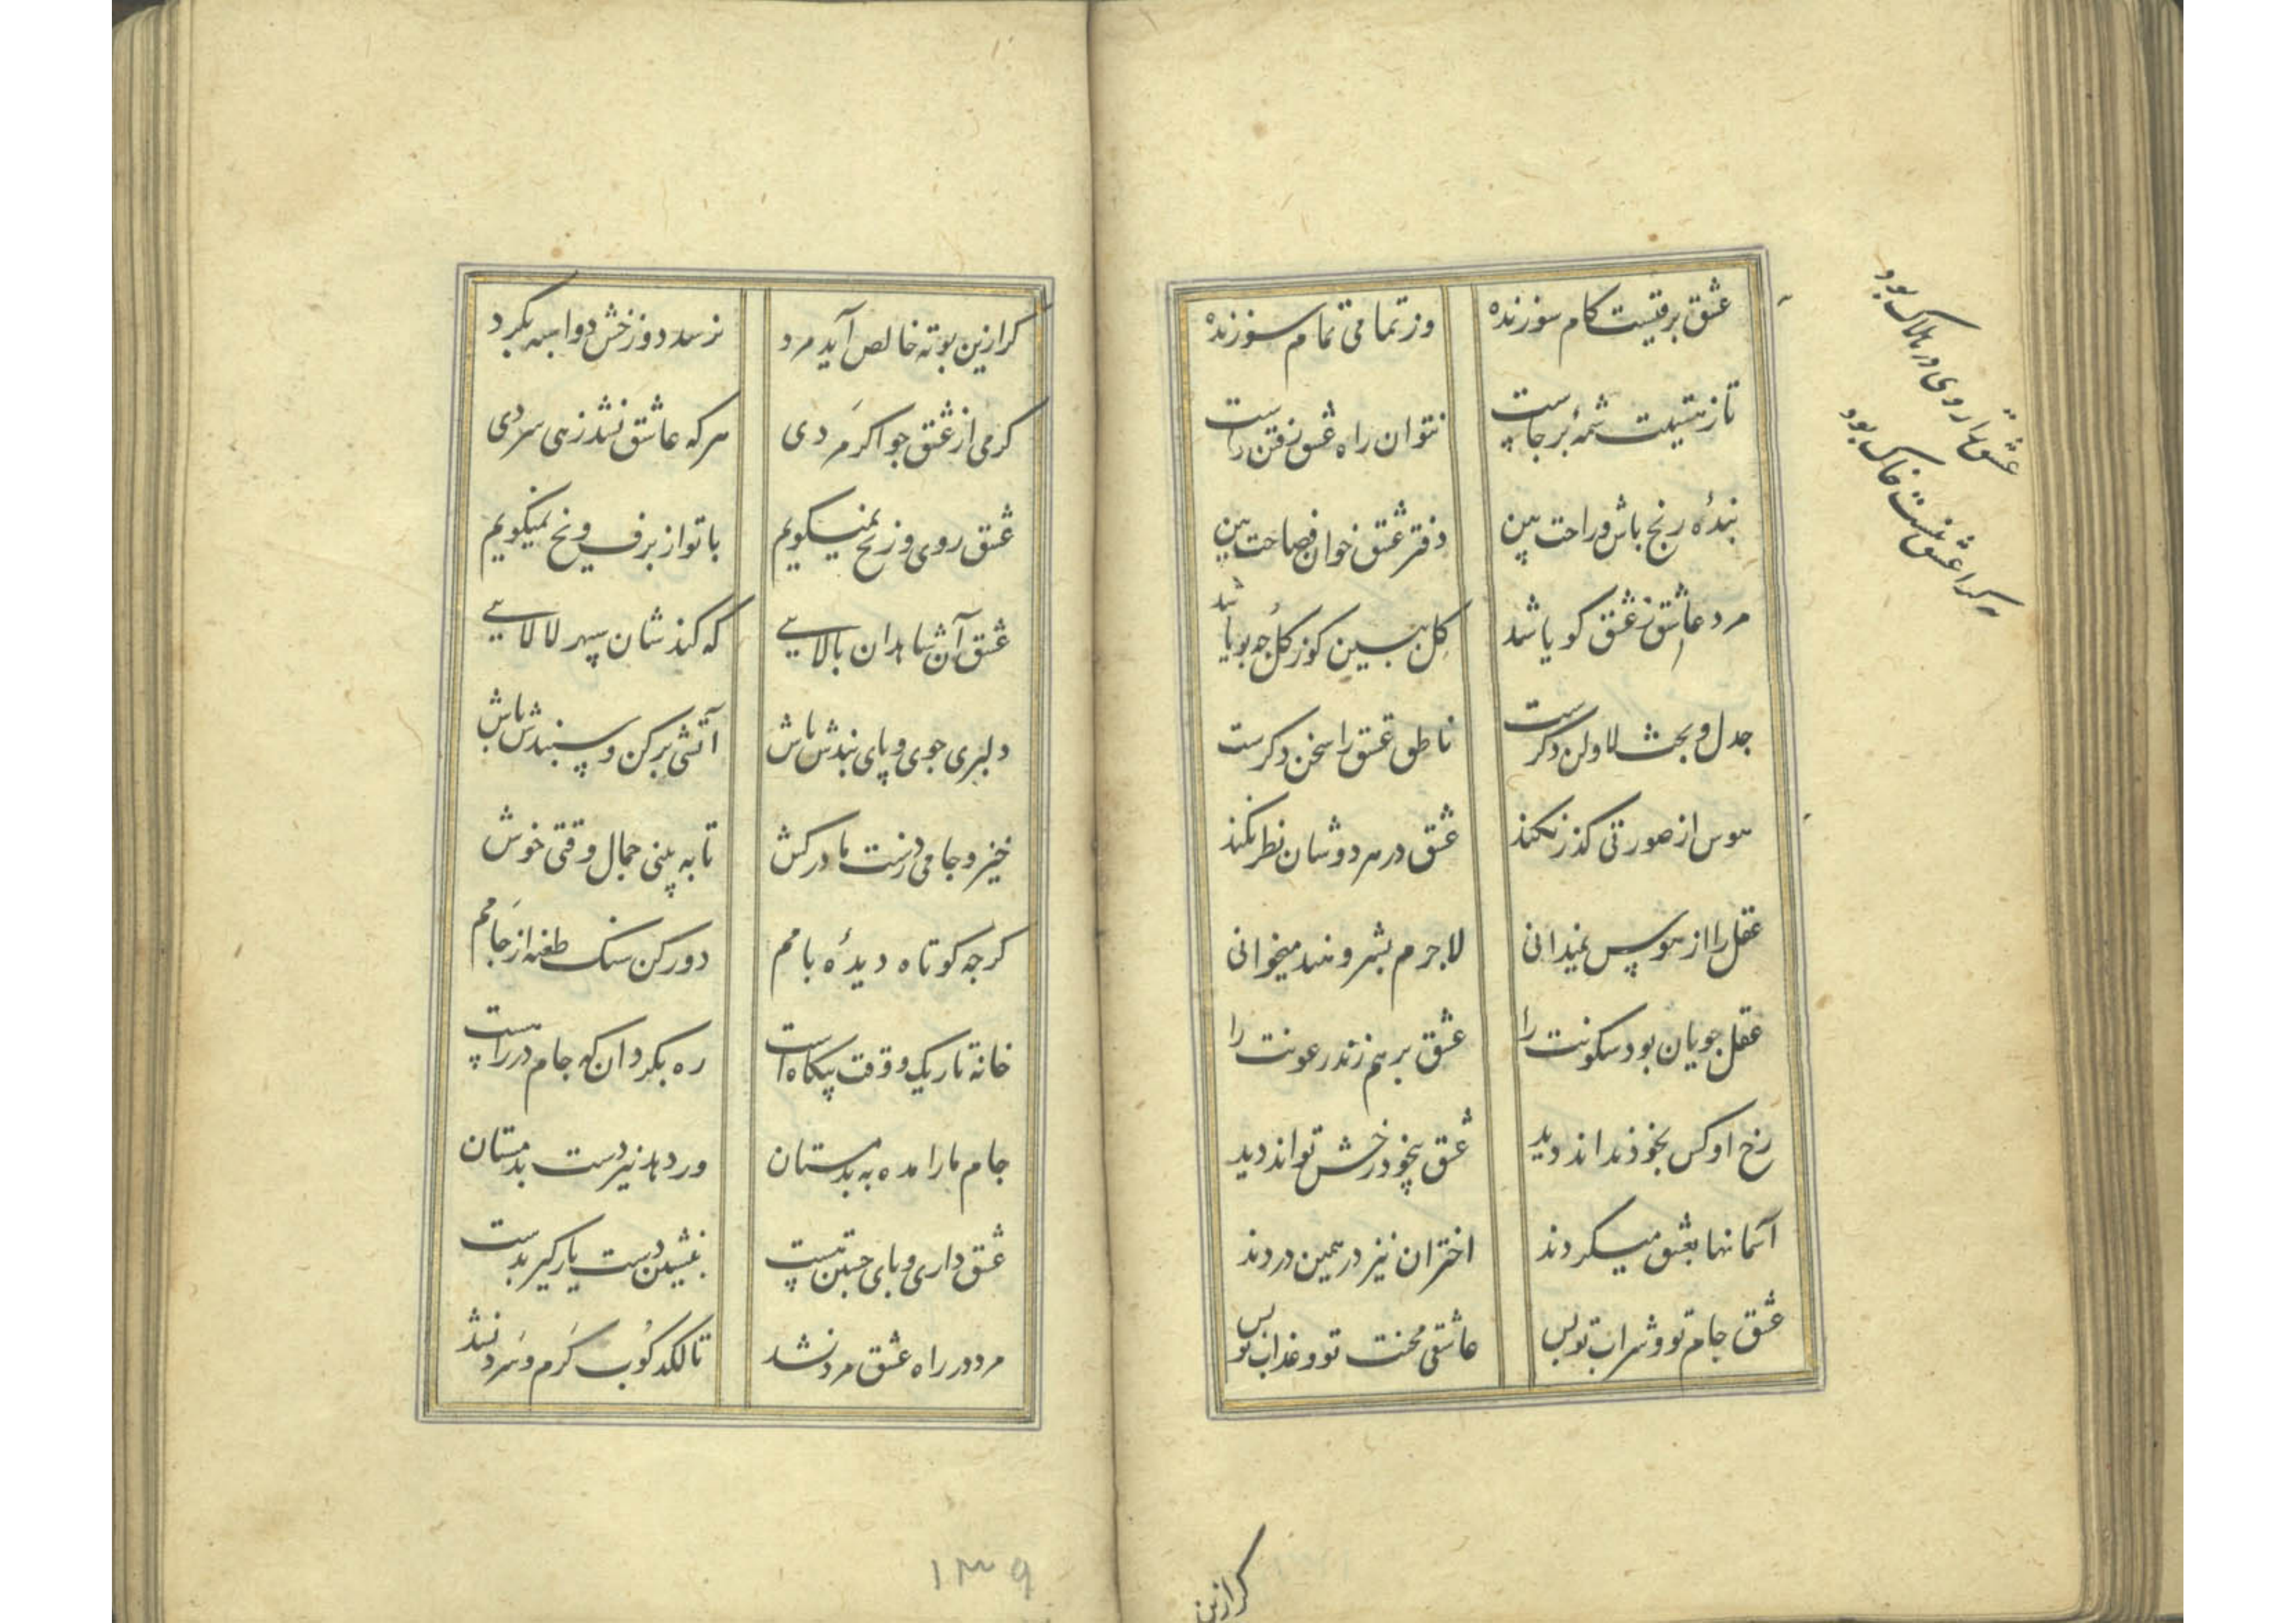 عشق برقیست کام سوزنده
وز تمامی تمام سوزنده
تا ز هستیت شمهٔ برجاست
نتوان راه عشق رفتن راست
بندهٔ رنج باش و راحت بین
دفتر عشق خوان فصاحت بین
مرد عاشق ز عشق کویا شد
کل ببین کوز کل چه بویا شد
جدل و بحث لا ولن دکرست
ناطق عشق را سخن دکرست
هوس از صورتی کذر نکند
عشق در هر دوشان نظر نکند
عقل را از هوس نمیدانی
لاجرم بشر و هند میخوانی
عقل جویان بود سکونت را
عشق بر هم زند رعونت را
رخ او کس بخود نداند دید
عشق بیخود رخش تواند دید
آسمانها بعشق میکردند
اختران نیز در همین دردند
عشق جام تو و شراب تو بس
عاشقی محنت تو و عذاب تو بس
عشق را روی در هلاک بود
هر کرا عشق نیست خاک بود
کر ازین
کر ازین بوته خالص آید مرد
نرسد دوزخش دواسبه بکرد
کرمی از عشق جو اکر مردی
هر که عاشق نشد زهی سردی
عشق روی و زنخ نمیکویم
با تو از برف و یخ نمیکویم
عشق آن شاهدان بالایی
که کند شان سپهر لالایی
دلبری جوی و پای بندش باش
آتشی بر کن و سپندش باش
خیز و جامی ز دست ما درکش
تا به بینی جمال وقتی خوش
کرچه کوتاه دیدهٔ بامم
دور کن سنک طعنه از جامم
خانه تاریک و وقت بیکاه است
ره بکردان که جام در راهست
جام ما را مده به بدمستان
ور دهد نیز دست بدمستان
عشق داری و پای جستن هست
بنشین دست یار کیر بدست
مرد در راه عشق مرد نشد
تا لکد کوب کرم و سرد نشد
۱۳۹